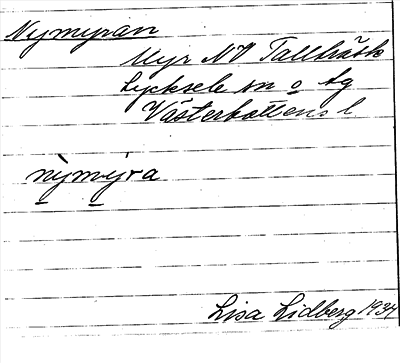 Nymyran
Myr NV Tallträsk
Lycksele sn o tg
Västerbottens l
nỳmýra
Lisa Lidberg 1934